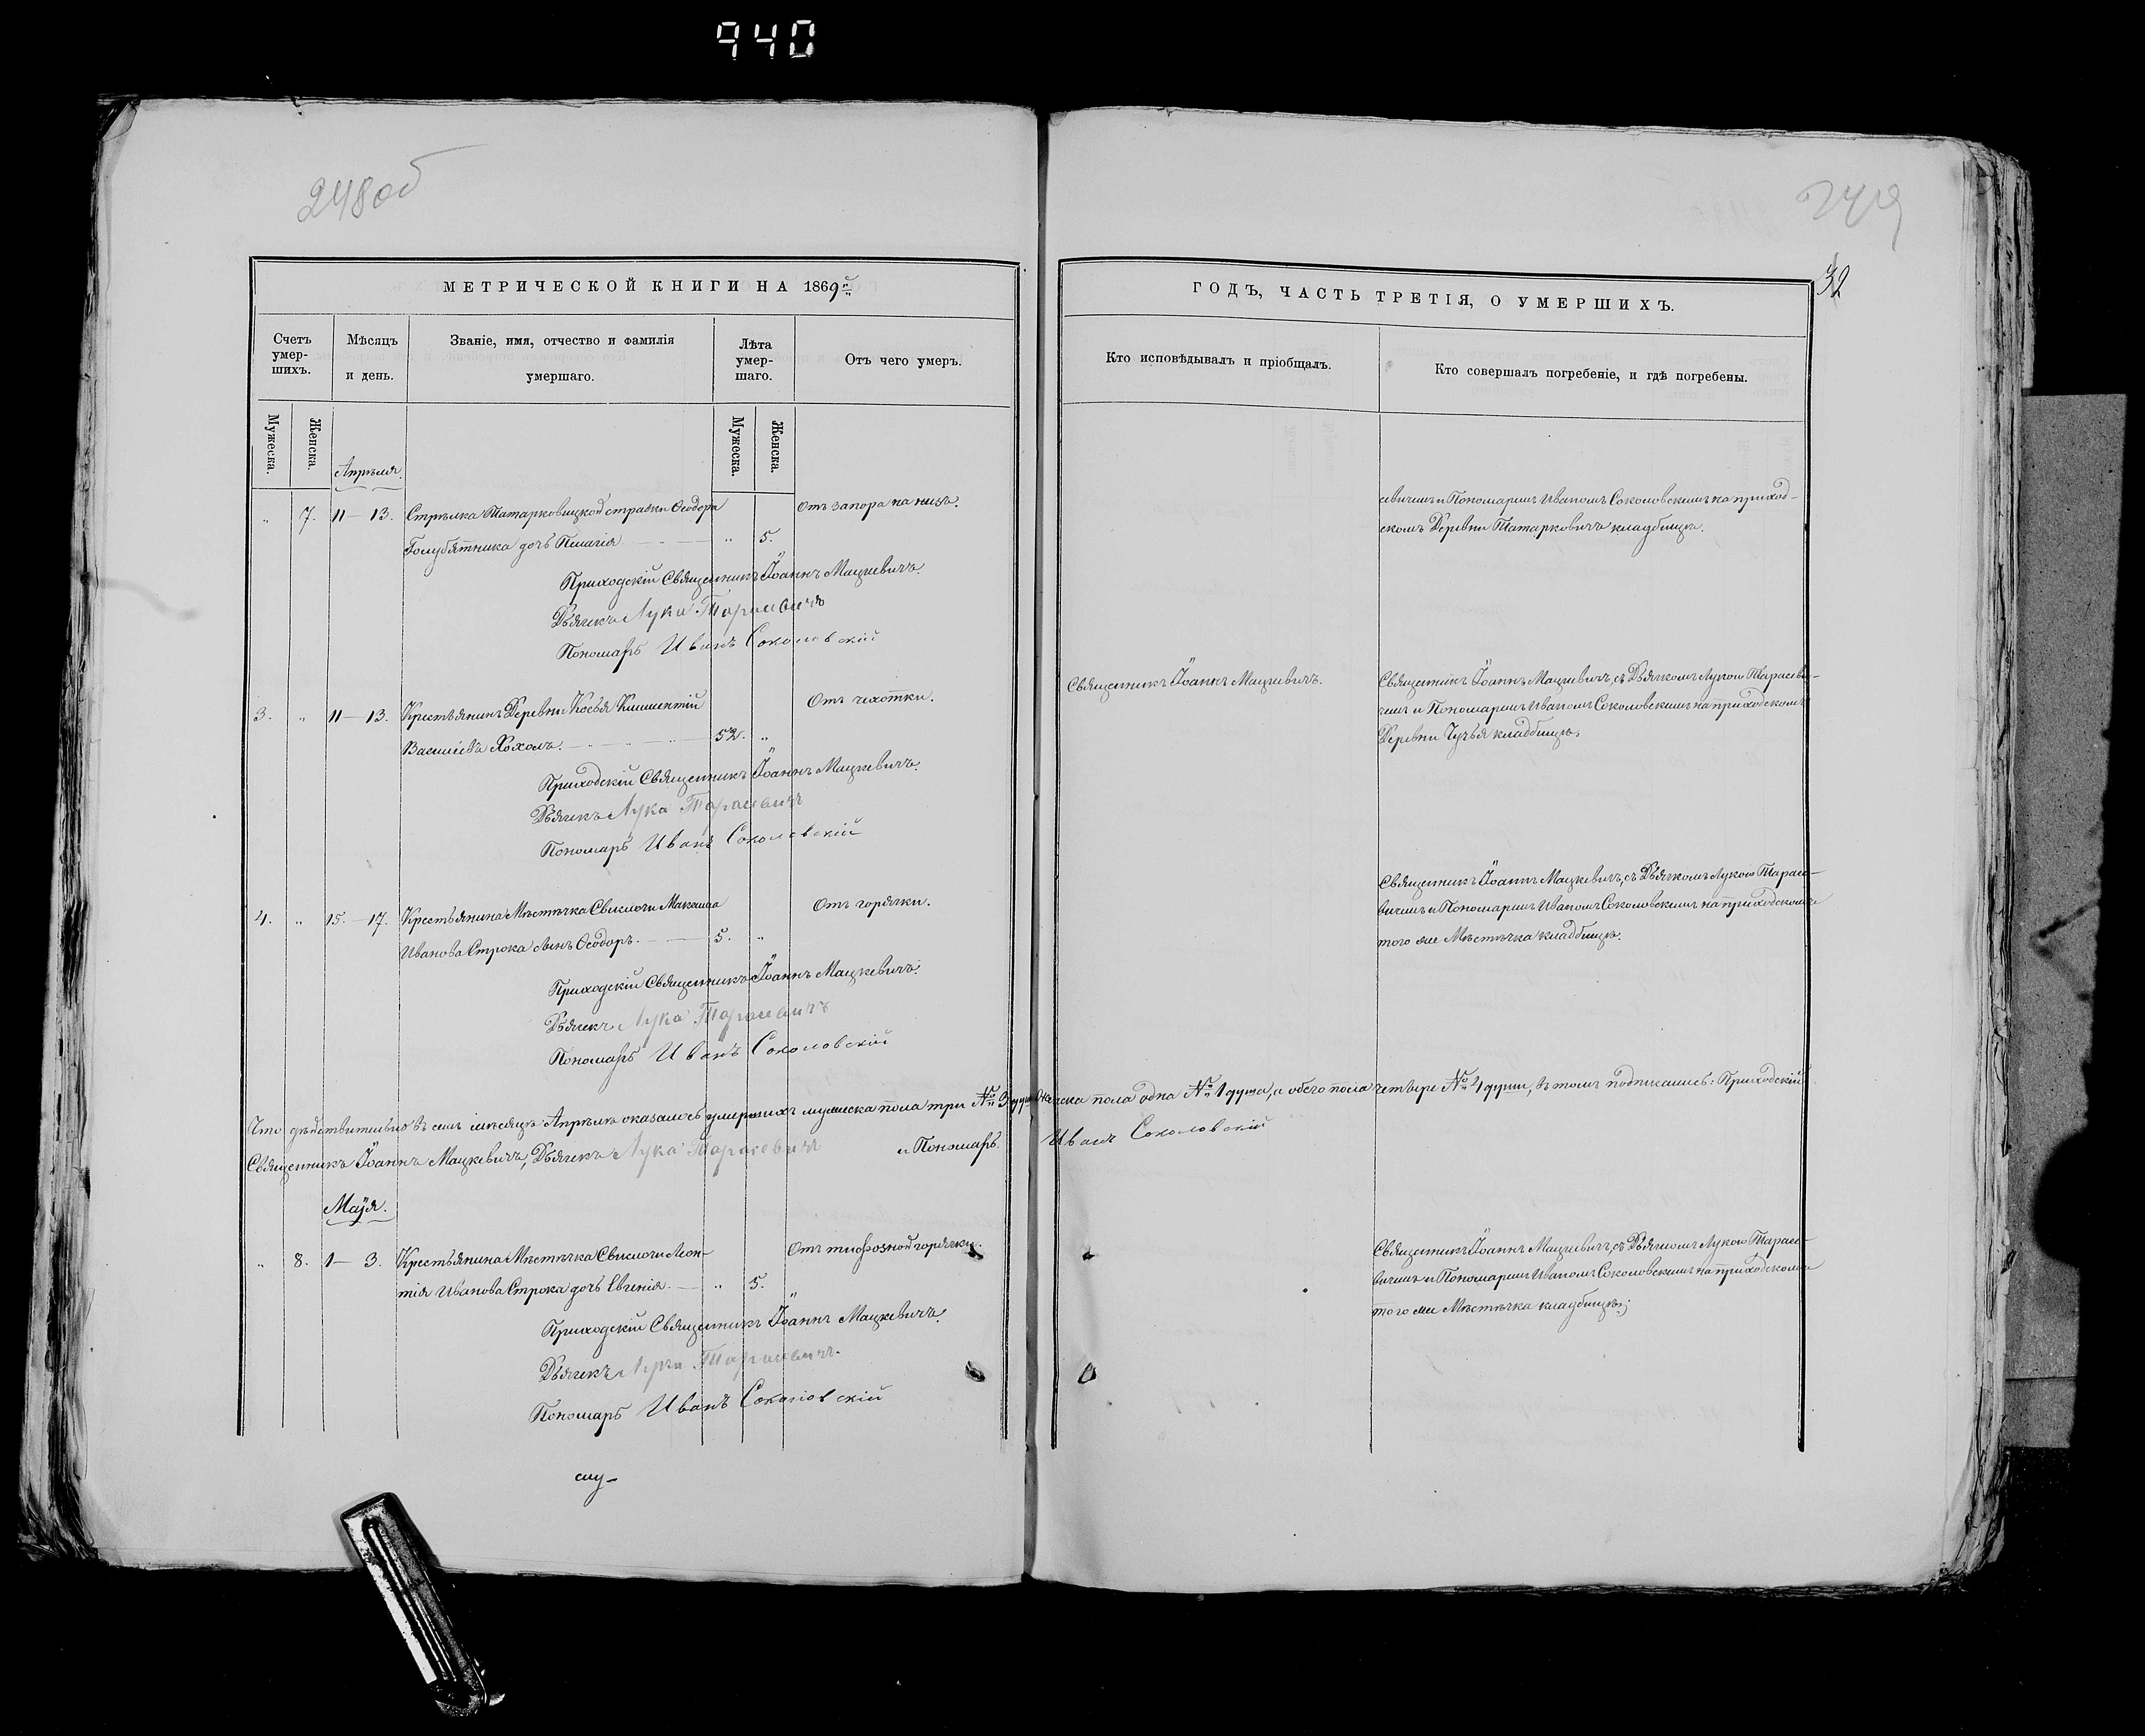 940
248об
249
32
МЕТРИЧЕСКОЙ КНИГИ НА 1869й
Счетъ умер-шихъ.
Мѣсяцъ и день.
Званіе, имя, отчество и фамилія умершаго.
Лѣта умер-шаго.
Отъ чего умеръ.
Мужеска.
Женска.
Мужеска.
Женска.
Апрѣля.
„ 7. 11 — 13. Стрѣлка Татарковицкой стражи Ѳеодора
Отъ запора на низъ.
Голубятника дочь Пелагія „ 5.
Приходскій Священникъ Іоаннъ Мацкевичъ.
Дьячекъ Лука Тарасевичъ
Пономарь Иванъ Соколовскій
3. „ 11 — 13. Крестьянинъ Деревни
Отъ чахотки.
Хохолъ. 52. „
Приходскій Священникъ Іоаннъ Мацкевичъ.
Дьячекъ Лука Тарасевичъ
Пономарь Иванъ Соколовскій
4. „ 15. — 17. Крестьянина Мѣстечка Свислочи
Отъ горячки.
Иванова Строка сынъ Ѳеодоръ. 5. „
Приходскій Священникъ Іоаннъ Мацкевичъ.
Дьячекъ Лука Тарасевичъ
Пономарь Иванъ Соколовскій
Что дѣйствительно въ семъ мѣсяцѣ Апрѣлѣ оказалось умершихъ мужеска пола три № 3 души, женска пола одна № 1 душа, а обего пола четыре № 4 души, въ томъ подписались: Приходскій
Священникъ Іоаннъ Мацкевичъ, Дьячекъ Лука Тарасевичъ и Пономарь Иванъ Соколовскій
Маія.
„ 8. 1 — 3. Крестьянина Мѣстечка Свислочи Леон-
Отъ тифозной горячки.
тія Иванова Строка дочь Евгенія. „ 5.
Приходскій Священникъ Іоаннъ Мацкевичъ.
Дьячекъ Лука Тарасевичъ.
Пономарь Иванъ Соколовскій
ГОДЪ, ЧАСТЬ ТРЕТІЯ, О УМЕРШИХЪ.
Кто исповѣдывалъ и пріобщалъ.
Кто совершалъ погребеніе, и гдѣ погребены.
севичемъ и Пономаремъ Иваномъ Соколовскимъ на приход-
скомъ Деревни Татарковичъ кладбищѣ.
Священникъ Іоаннъ Мацкевичъ.
Священникъ Іоаннъ Мацкевичъ, съ Дьячкомъ Лукою Тарасеви-
чемъ и Пономаремъ Иваномъ Соколовскимъ на приходскомъ
Деревни Чучья кладбищѣ.
Священникъ Іоаннъ Мацкевичъ, съ Дьячкомъ Лукою Тарасе-
вичемъ и Пономаремъ Иваномъ Соколовскимъ на приходскомъ
того же Мѣстечка кладбищѣ.
Священникъ Іоаннъ Мацкевичъ, съ Дьячкомъ Лукою Тарасе-
вичемъ и Пономаремъ Иваномъ Соколовскимъ на приходскомъ
того же Мѣстечка кладбищѣ;